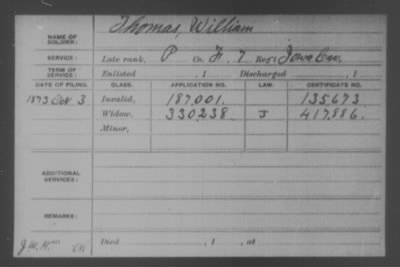 NAME OF SOLDIER: Thomas, William
SERVICE: Late rank, P Co. F, 7 Reg't Iowa Cav.
TERM OF SERVICE: Enlisted , 1 Discharged , 1
DATE OF FILING. CLASS. APPLICATION NO. LAW. CERTIFICATE NO.
1873 3 Invalid, 187.001. 135.673
Widow, 330.238 J 417.886.
Minor,
ADDITIONAL SERVICES:
REMARKS:
Died , 1 , at